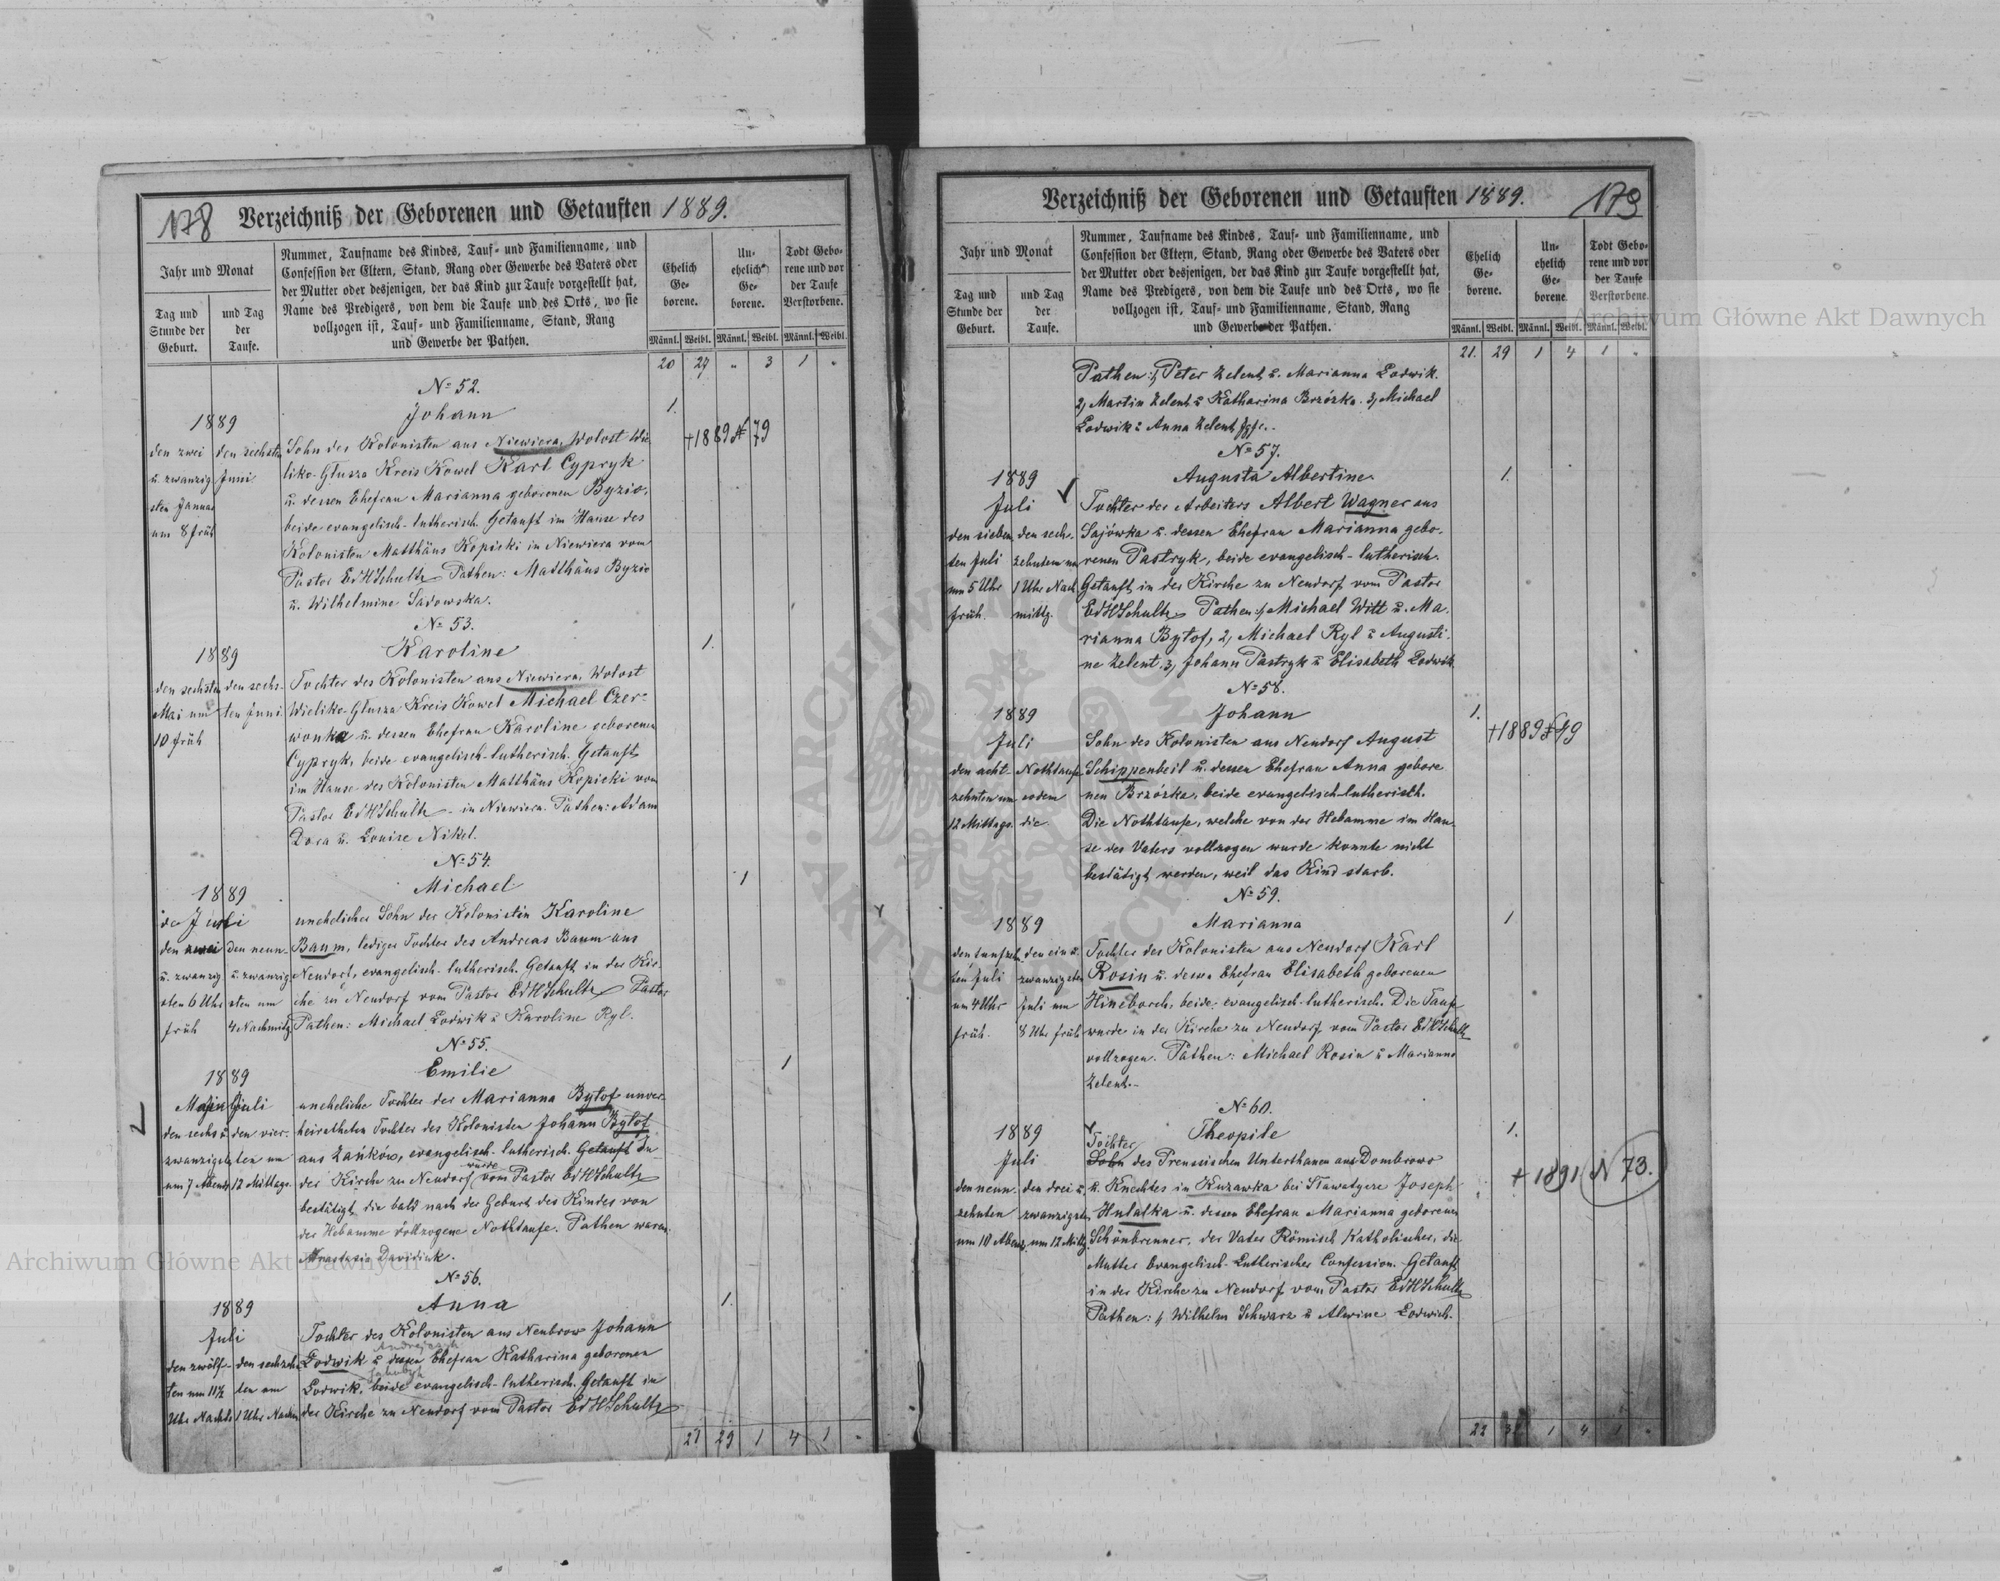 178 Verzeichniß der Geborenen und Getauften 1889.
Jahr und Monat
Tag und Stunde der Geburt.
und Tag der Taufe.
Nummer, Taufname des Kindes, Tauf- und Familienname, und
Confession der Eltern, Stand, Rang oder Gewerbe des Vaters oder
der Mutter oder desjenigen, der das Kind zur Taufe vorgestellt hat,
Name des Predigers, von dem die Taufe und des Orts, wo sie
vollzogen ist, Tauf- und Familienname, Stand, Rang
und Gewerbe der Pathen.
Ehelich Ge- borene.
Un- ehelich Ge- borene.
Todt Gebo- rene und vor der Taufe Verstorbene.
Männl. Weibl. Männl. Weibl. Männl. Weibl.
20 27 " 3 1 "
No 52.
Johann
1.
1889
den zwei u. zwanzig sten Januar um 8 früh
den sechsten Juni
Sohn des Kolonisten aus Niewiera, Wolost Wie
liko-Glusza Kreis Kowel Karl Cypryk
u. dessen Ehefrau Marianna geborenen Byzio,
beide evangelisch-lutherisch. Getauft im Hause des
Kolonisten Matthäus Kopicki in Niewiera vom
Pastor EdHSchultz Pathen: Matthäus Byzio
u. Wilhelmine Sadowska.
+1889 N 79
No 53.
Karoline
1.
1889
den sechsten Mai um 10 früh
den sechs- ten Juni
Tochter des Kolonisten aus Niewiera, Wolost
Wieliko-Glusza Kreis Kowel Michael Czer-
wonka u. dessen Ehefrau Karoline geborenen
Cypryk, beide evangelisch-lutherisch. Getauft
im Hause des Kolonisten Matthäus Kopicki vom
Pastor EdHSchultz in Niewiera. Pathen: Adam
Dora u. Louise Nikel.
No 54.
Michael
1
1889
Juli
den zwei u. zwanzig sten 6 Uhr früh
den neun- u. zwanzig sten um 4 Nachmitg
unehelicher Sohn der Kolonistin Karoline
Baum, lediger Tochter des Andreas Baum aus
Neudorf, evangelisch-lutherisch. Getauft in der Kir-
che zu Neudorf vom Pastor EdHSchultz Pastor
Pathen: Michael Lodwik u. Karoline Ryl.
No 55.
Emilie
1
1889
Juli
den sechs u. zwanzigsten um 7 Abends
den vier- ten um 12 Mittags.
uneheliche Tochter der Marianna Bytof unver-
heiratheten Tochter des Kolonisten Johann Bytof
aus Zańkow, evangelisch-lutherisch. Getauft In
der Kirche zu Neudorf wurde vom Pastor EdHSchultz
bestätigt die bald nach der Geburt des Kindes von
der Hebamme vollzogene Nothtaufe. Pathen waren:
Anastasia Davidiuk.
No 56.
Anna
1.
1889
Juli
den zwölf- ten um 11½ Uhr Nachts
den sechzehn ten um 1 Uhr Nachm
Tochter des Kolonisten aus Neubrow Johann
Lodwik u dessen Ehefrau Katharina geborenen
Lodwik, beide evangelisch-lutherisch. Getauft in
der Kirche zu Neudorf vom Pastor EdHSchultz
21 29 1 4 1 "
Verzeichniß der Geborenen und Getauften 1889. 179
Jahr und Monat
Tag und Stunde der Geburt.
und Tag der Taufe.
Nummer, Taufname des Kindes, Tauf- und Familienname, und
Confession der Eltern, Stand, Rang oder Gewerbe des Vaters oder
der Mutter oder desjenigen, der das Kind zur Taufe vorgestellt hat,
Name des Predigers, von dem die Taufe und des Orts, wo sie
vollzogen ist, Tauf- und Familienname, Stand, Rang
und Gewerbe der Pathen.
Ehelich Ge- borene.
Un- ehelich Ge- borene.
Todt Gebo- rene und vor der Taufe Verstorbene.
Männl. Weibl. Männl. Weibl. Männl. Weibl.
21. 29 1 4 1 "
Pathen: 1, Peter Zelent u. Marianna Lodwik.
2, Martin Zelent u Katharina Brzózka. 3, Michael
Lodwik u Anna Zelent
No 57.
Augusta Albertine
1.
1889
Juli
den sieben ten Juli um 5 Uhr früh.
den sech- zehnten um 1 Uhr Nach mittg.
Tochter des Arbeiters Albert Wagner aus
Sajówka u. dessen Ehefrau Marianna gebo-
renen Pastryk, beide evangelisch-lutherisch.
Getauft in der Kirche zu Neudorf vom Pastor
EdHSchultz Pathen: 1, Michael Witt u. Ma-
rianna Bytof, 2, Michael Ryl u Augusti-
ne Zelent, 3, Johann Pastryk u Elisabeth Lodwik
No 58.
Johann
1.
1889
Juli
den acht- zehnten um 12 Mittags.
Nothtaufe eodem die
Sohn des Kolonisten aus Neudorf August
Schippenbeil u. dessen Ehefrau Anna gebore
nen Brzózka, beide evangelisch-lutherisch.
Die Nothtaufe, welche von der Hebamme im Hau-
se des Vaters vollzogen wurde konnte nicht
bestätigt werden, weil das Kind starb.
+1889 N 99
No 59.
Marianna
1
1889
den funfzehn ten Juli um 4 Uhr früh.
den ein u. zwanzigsten Juli um 8 Uhr früh
Tochter des Kolonisten aus Neudorf Karl
Rosin u. dessen Ehefrau Elisabeth geborenen
Hineborch, beide evangelisch-lutherisch. Die Taufe
wurde in der Kirche zu Neudorf vom Pastor EdHSchultz
vollzogen. Pathen: Michael Rosin u Marianna
Zelent.
No 60.
Theopile
1.
1889
Juli
den neun- zehnten um 10 Abends
den drei u. zwanzigsten um 12 Mittg.
Tochter
Sohn des Preussischen Unterthanen aus Dombrowo
u. Knechtes in Kuzawka bei Slawatycze Joseph
Hulatka u. dessen Ehefrau Marianna geborenen
Schönbrenner, der Vater Römisch Katholischer, die
Mutter Evangelisch-Lutherischer Confession. Getauft
in der Kirche zu Neudorf vom Pastor EdHSchultz
Pathen: 1, Wilhelm Schwarz u Alwine Lodwich.
+ 1891 N 73.
22 31 1 4 1 "
Archiwum Główne Akt Dawnych
Archiwum Główne Akt Dawnych